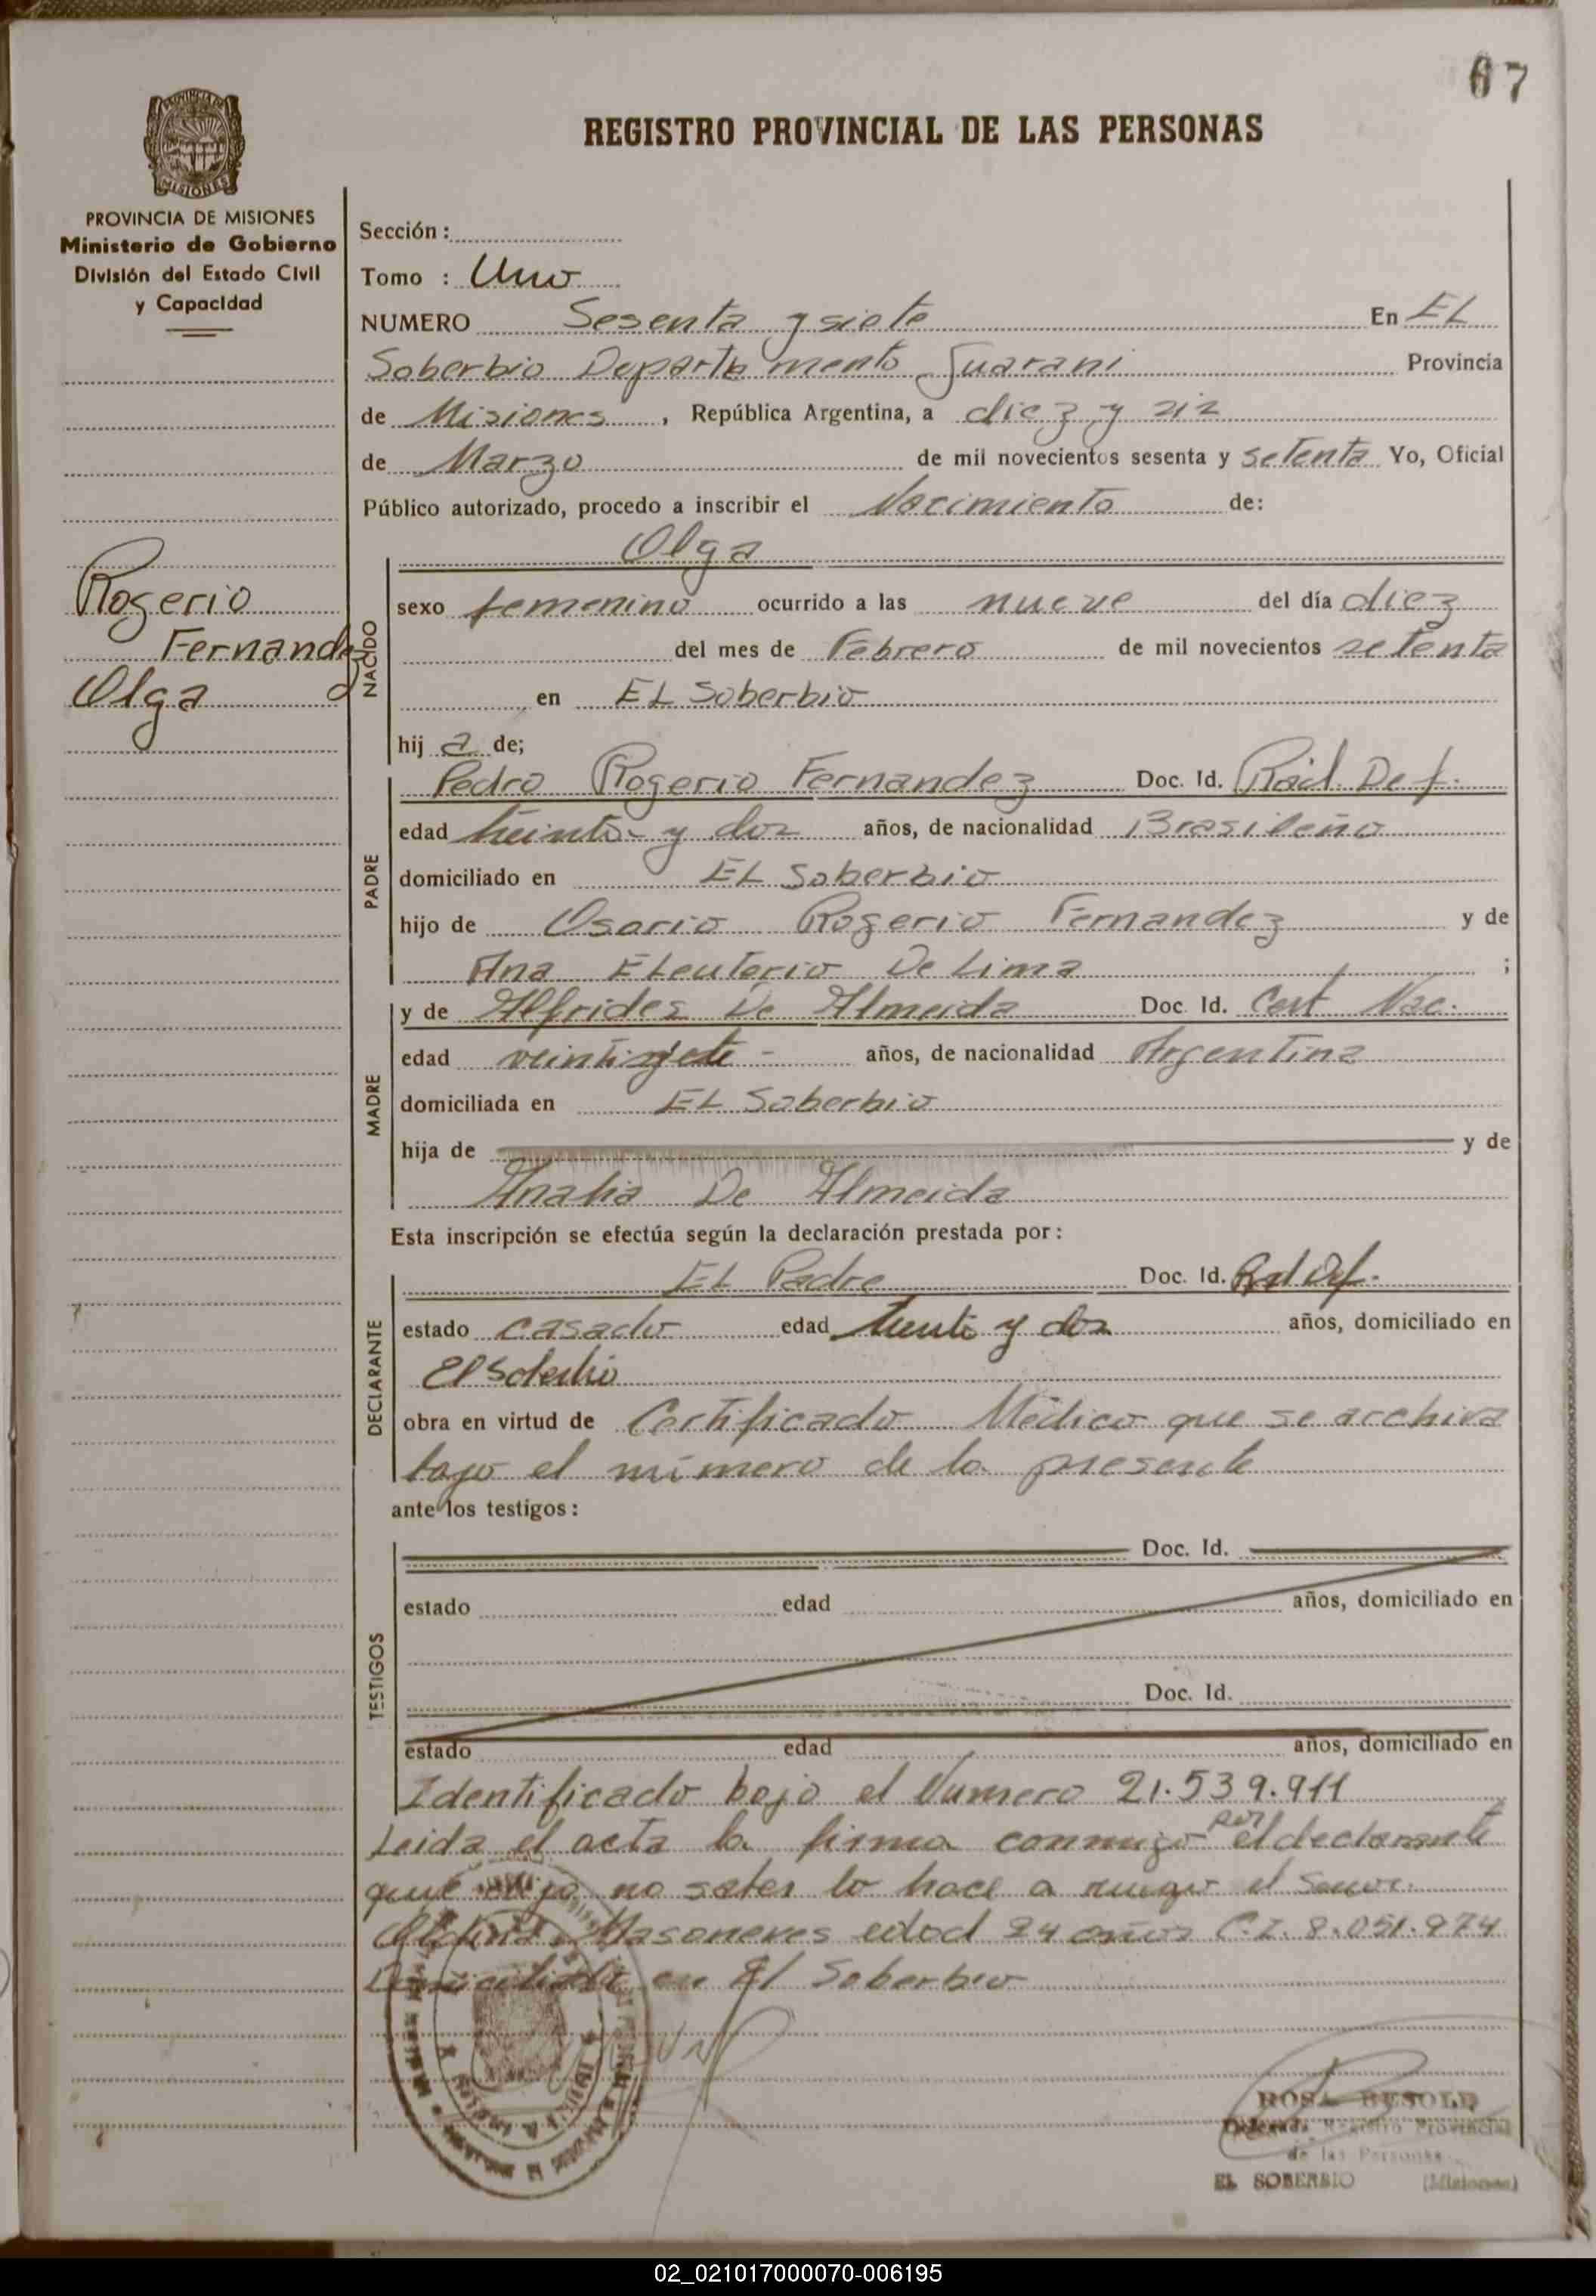 67
REGISTRO PROVINCIAL DE LAS PERSONAS
PROVINCIA DE MISIONES
Ministerio de Gobierno
División del Estado Civil
y Capacidad
Rogerio
Fernandez
Olga
Sección :
Tomo : Uno
NUMERO Sesenta y siete En EL
Soberbio Departamento Guarani Provincia
de Misiones , República Argentina, a diez y
de Marzo de mil novecientos sesenta y setenta Yo, Oficial
Público autorizado, procedo a inscribir el Nacimiento de:
Olga
NACIDO
sexo femenino ocurrido a las nueve del día diez
del mes de Febrero de mil novecientos setenta
en EL Soberbio
hij a de;
PADRE
Pedro Rogerio Fernandez Doc. Id.
edad treinta y dos años, de nacionalidad Brasileño
domiciliado en EL Soberbio
hijo de Osorio Rogerio Fernandez y de
Ana Eleuterio De Lima ;
MADRE
y de Alfrides De Almeida Doc. Id. Cert Nac.
edad veintisiete - años, de nacionalidad Argentina
domiciliada en EL Soberbio
hija de y de
Analia De Almeida
Esta inscripción se efectúa según la declaración prestada por :
DECLARANTE
EL Padre Doc. Id.
estado casado edad treinta y dos años, domiciliado en
El Soberbio
obra en virtud de Certificado Médico que se archiva
bajo el número de la presente
ante los testigos :
TESTIGOS
Doc. Id.
estado edad años, domiciliado en
Doc. Id.
estado edad años, domiciliado en
Identificado bajo el Numero 21.539.911
Leida el acta la firma conmigo por el declarante
que dijo no saber lo hace a ruego el Señor
Masoneres edad 24 años C.I. 8.051.974
Domiciliado en El Soberbio
ROSA BESOLD
Delegada Registro Provincial
de las Personas
EL SOBERBIO (Misiones)
02_021017000070-006195